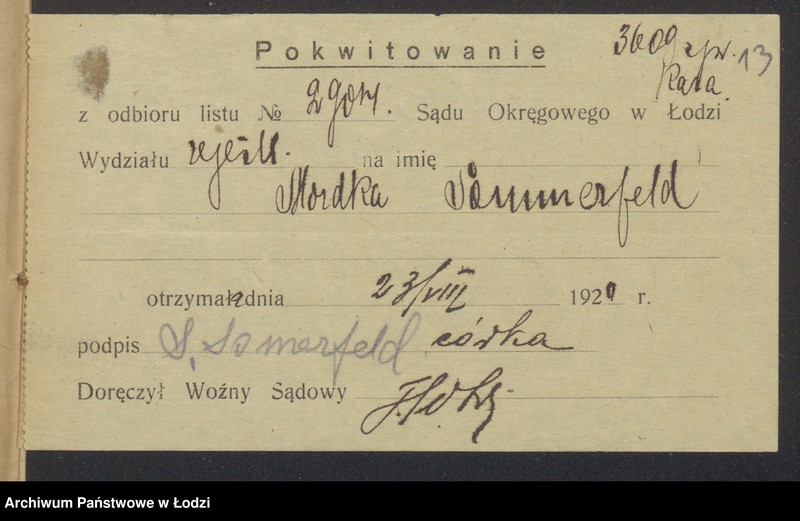 Pokwitowanie
3609 13
z odbioru listu № Sądu Okręgowego w Łodzi
Wydziału na imię
Mordka Sommerfeld
otrzymała dnia 23/VIII 1921 r.
podpis S. Somerfeld córka
Doręczył Woźny Sądowy
Archiwum Państwowe w Łodzi